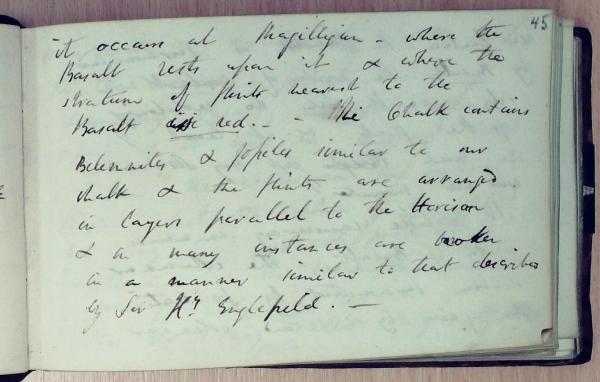 45
it occurs at Magilligan - where the
Basalt rests upon it & where the
stratum of flints nearest to the
Basalt is red. - - The Chalk contains
Belemnites & fossiles similar to our
chalk & the flints are arranged
in layers parallel to the Horison
& in many instances are broken
in a manner similar to that described
by Sir Hy. Englefield. —